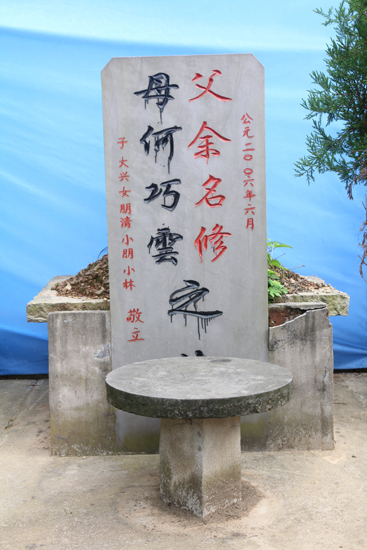 公元二〇〇六年六月
父余名修
母何巧雲
之
子大兴女朋清小朋小林
敬立